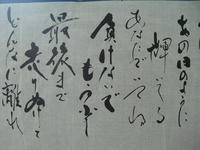 あの日のように
輝いてる
あなたでいてね
負けないで
もう少し
最後まで
走りぬけて
どんなに離れ